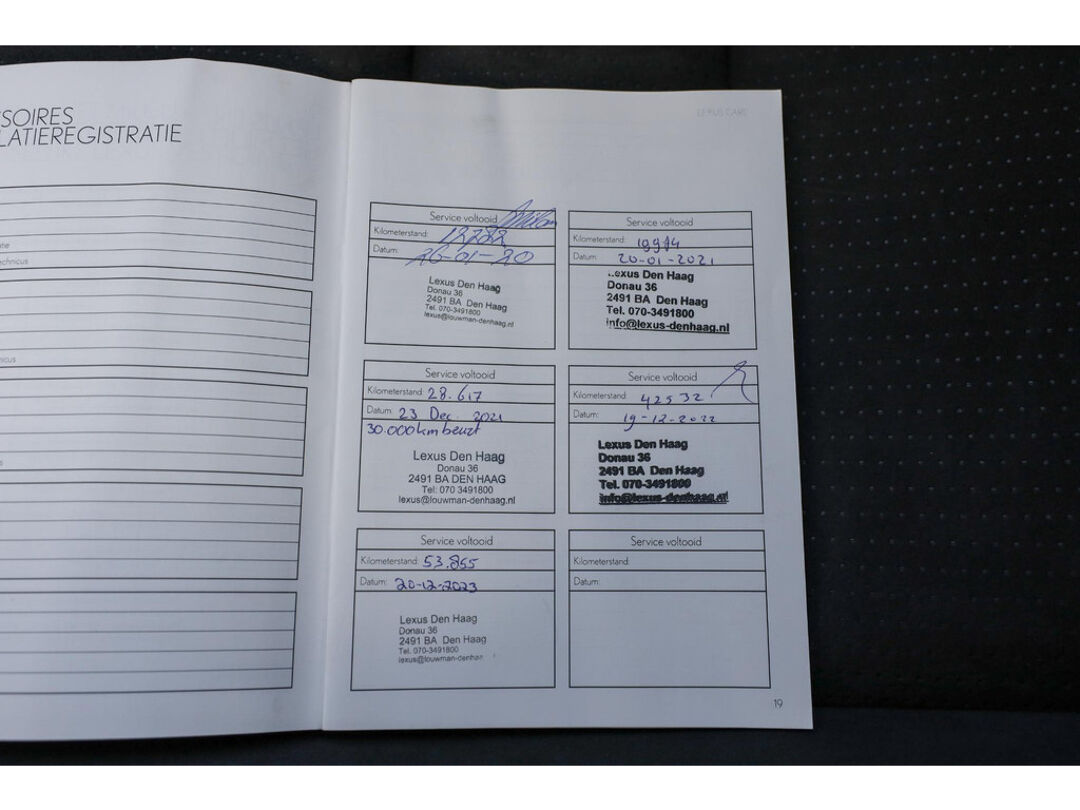 SOIRES
LATIEREGISTRATIE
tie
echnicus
nicus
s
LEXUS CARE
Service voltooid
Kilometerstand:
Datum: 26-01-20
Lexus Den Haag
Donau 36
2491 BA Den Haag
Tel. 070-3491800
lexus@louwman-denhaag.nl
Service voltooid
Kilometerstand:
Datum: 20-01-2021
Lexus Den Haag
Donau 36
2491 BA Den Haag
Tel. 070-3491800
info@lexus-denhaag.nl
Service voltooid
Kilometerstand: 28.617
Datum: 23 Dec. 2021
30.000km beurt
Lexus Den Haag
Donau 36
2491 BA DEN HAAG
Tel: 070 3491800
lexus@louwman-denhaag.nl
Service voltooid
Kilometerstand: 42532
Datum: 19-12-2022
Lexus Den Haag
Donau 36
2491 BA Den Haag
Tel. 070-3491800
info@lexus-denhaag.nl
Service voltooid
Kilometerstand: 53.855
Datum: 20-12-2023
Lexus Den Haag
Donau 36
2491 BA Den Haag
Tel. 070-3491800
lexus@louwman-denhaag
Service voltooid
Kilometerstand:
Datum:
19